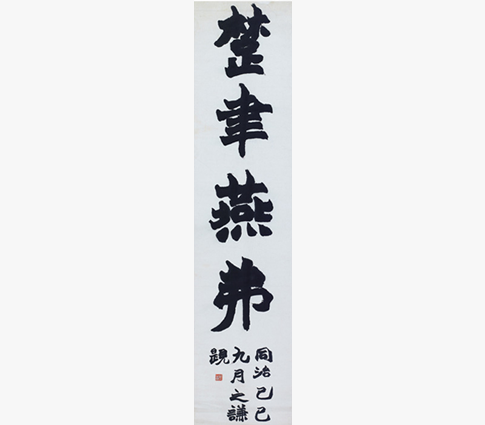 楚聿燕弗
同治己巳
九月之謙
䚣